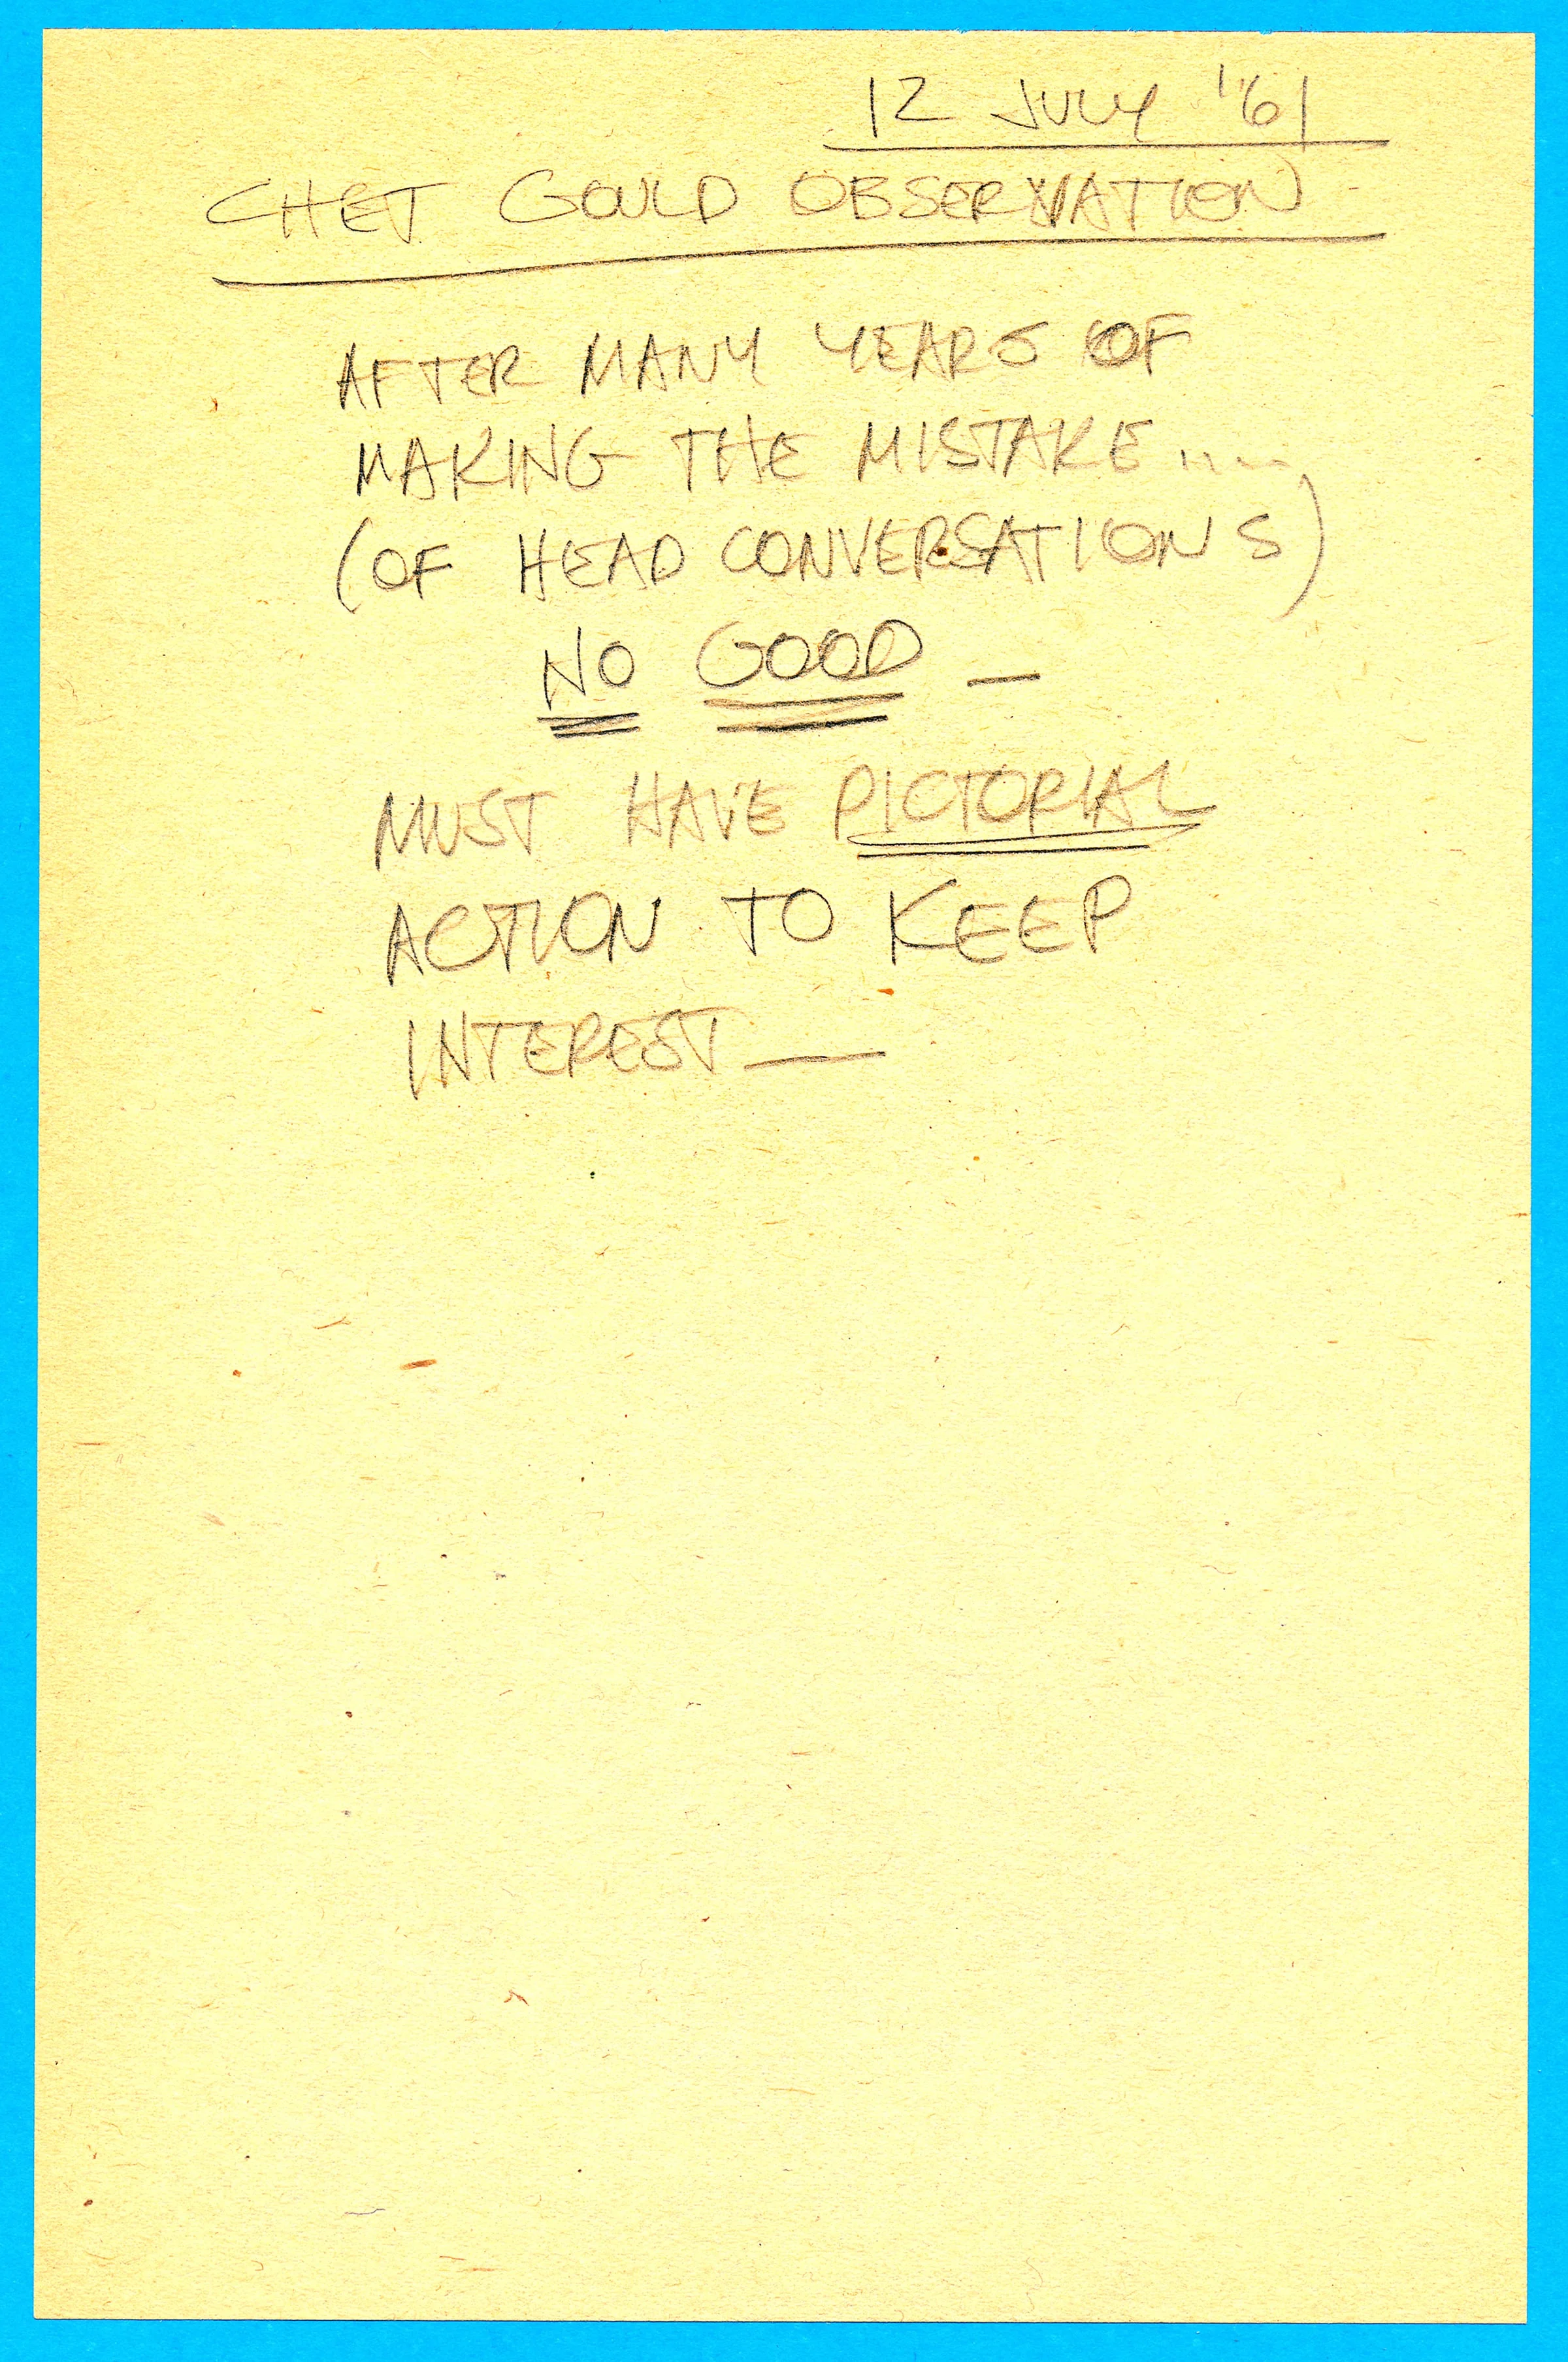 12 JULY '61
CHET GOULD OBSERVATION
AFTER MANY YEARS OF
MAKING THE MISTAKE ....
(OF HEAD CONVERSATIONS)
NO GOOD —
MUST HAVE PICTORIAL
ACTION TO KEEP
INTEREST —